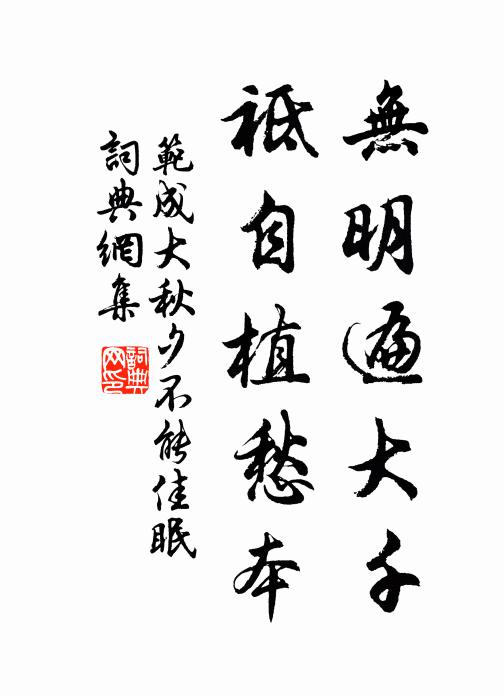 無明遍大千
祗自植愁本
範成大秋夕不能佳眠
詞典網集
詞典
网印